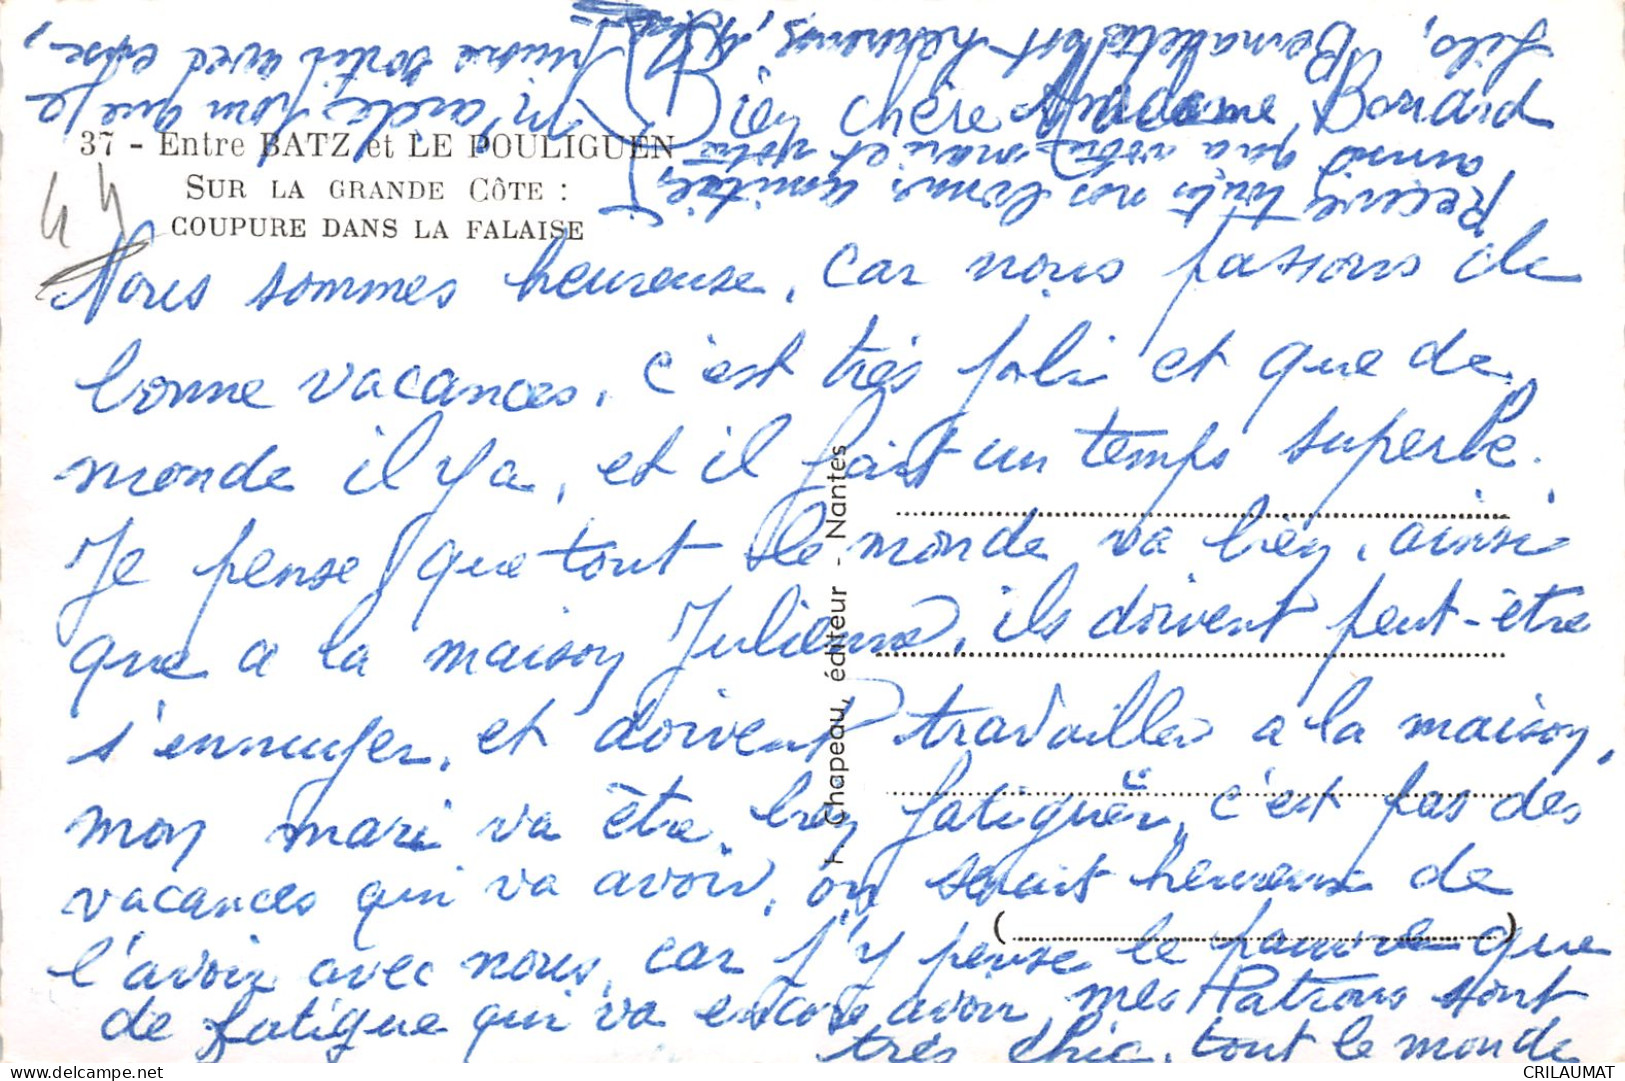 37 - Entre BATZ et LE POULIGUEN
SUR LA GRANDE CÔTE :
COUPURE DANS LA FALAISE
44
Bien chère Madame Bonard
Nous sommes heureuse, car nous passons de
bonne vacances, c'est très joli et que de
monde il y a, et il fait un temps superbe.
Je pense que tout le monde va bien, ainsi
que a la maison Julienne, ils doivent peut-être
s'ennuyer, et doivent travailler a la maison,
mon mari va être bien fatiguër, c'est pas des
vacances qui va avoir, on serait heureux de
l'avoir avec nous, car j'y pense le pauvre que
de fatigue qui va encore avoir, mes Patrons sont
très chic, tout le monde
m'aide pour que je
puisse sortir avec eux,
Lilo, Bernadette sont heureuse,
Recevez toutes nos bonnes amitiés
ainsi qua votre mari et votre
F. Chapeau, éditeur - Nantes
CRILAUMAT